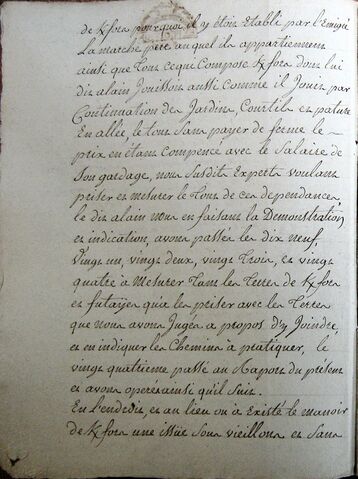 de Kfora pourquoi il y etois Etabli par l'Emigré
La marche pere auquel il appartiennent
ainsi que Tous ce qui Compose Kfora dons lui
dis alain Jouissois aussi Comme il Jouis par
Continuation des Jardins, Courtils es pature
En allée, le tous Sans payer de ferme le
prix en étans Compencé avec le Salaire de
Son gardage, nous Susdits Experts voulans
priser es mesurer le Tous de ces dependances,
le dis alain nous en faisans la Demonstration
es indication, avons passés les dix neuf,
Vingt un, vingt deux, vingt Trois, es vingt
quatre à Mesurer Tans les Terres de Kfora
es futayes qu'a les priser avec les Terres
que nous avons Jugés a propos d'y Joindre,
es en indiquer les Chemins à pratiquer, le
vingt quatrieme passe au Rapors du présens
es avons operés ainsi qu'il Suis.
En L'endrois, es au lieu ou a Existé le manoir
de Kfora une issüe Sous vieillons es Sans